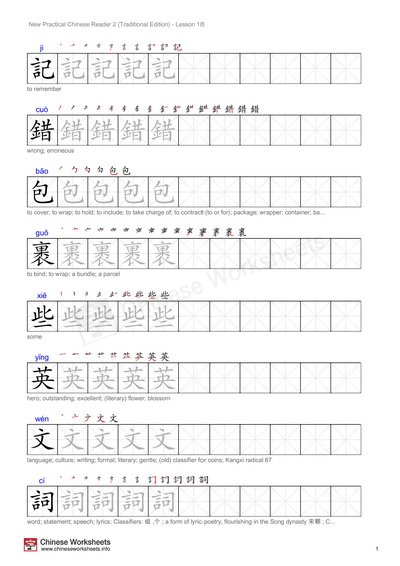 New Practical Chinese Reader 2 (Traditional Edition) - Lesson 18
jì
記 記 記 記 記
to remember
cuò
錯 錯 錯 錯 錯
wrong; erroneous
bāo
包 包 包 包 包
to cover; to wrap; to hold; to include; to take charge of; to contract (to or for); package; wrapper; container; ba...
guǒ
裹 裹 裹 裹 裹
to bind; to wrap; a bundle; a parcel
xiē
些 些 些 些 些
some
yīng
英 英 英 英 英
hero; outstanding; excellent; (literary) flower; blossom
wén
文 文 文 文 文
language; culture; writing; formal; literary; gentle; (old) classifier for coins; Kangxi radical 67
cí
詞 詞 詞 詞 詞
word; statement; speech; lyrics; Classifiers: 組 ,个 ; a form of lyric poetry, flourishing in the Song dynasty 宋朝 ; C...
Chinese Worksheets
www.chineseworksheets.info
1